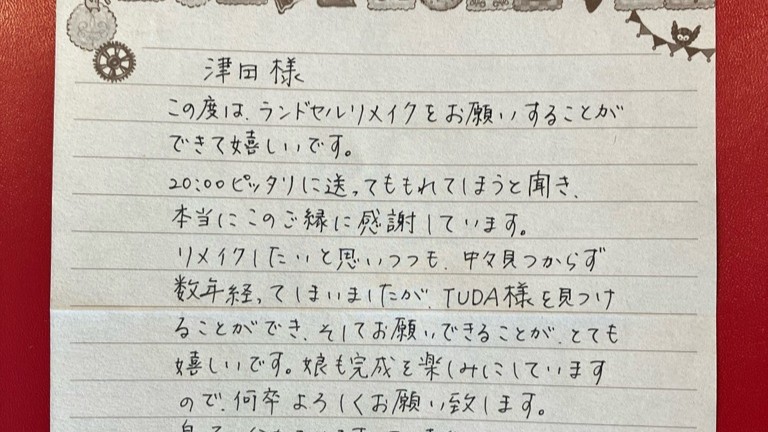 津田様
この度は、ランドセルリメイクをお願いすることが
できて嬉しいです。
20:00ピッタリに送ってももれてしまうと聞き、
本当にこのご縁に感謝しています。
リメイクしたいと思いつつも、中々見つからず
数年経ってしまいましたが、TUDA様を見つけ
ることができ、そしてお願いできることが、とても
嬉しいです。娘も完成を楽しみにしています
ので、何卒よろしくお願い致します。